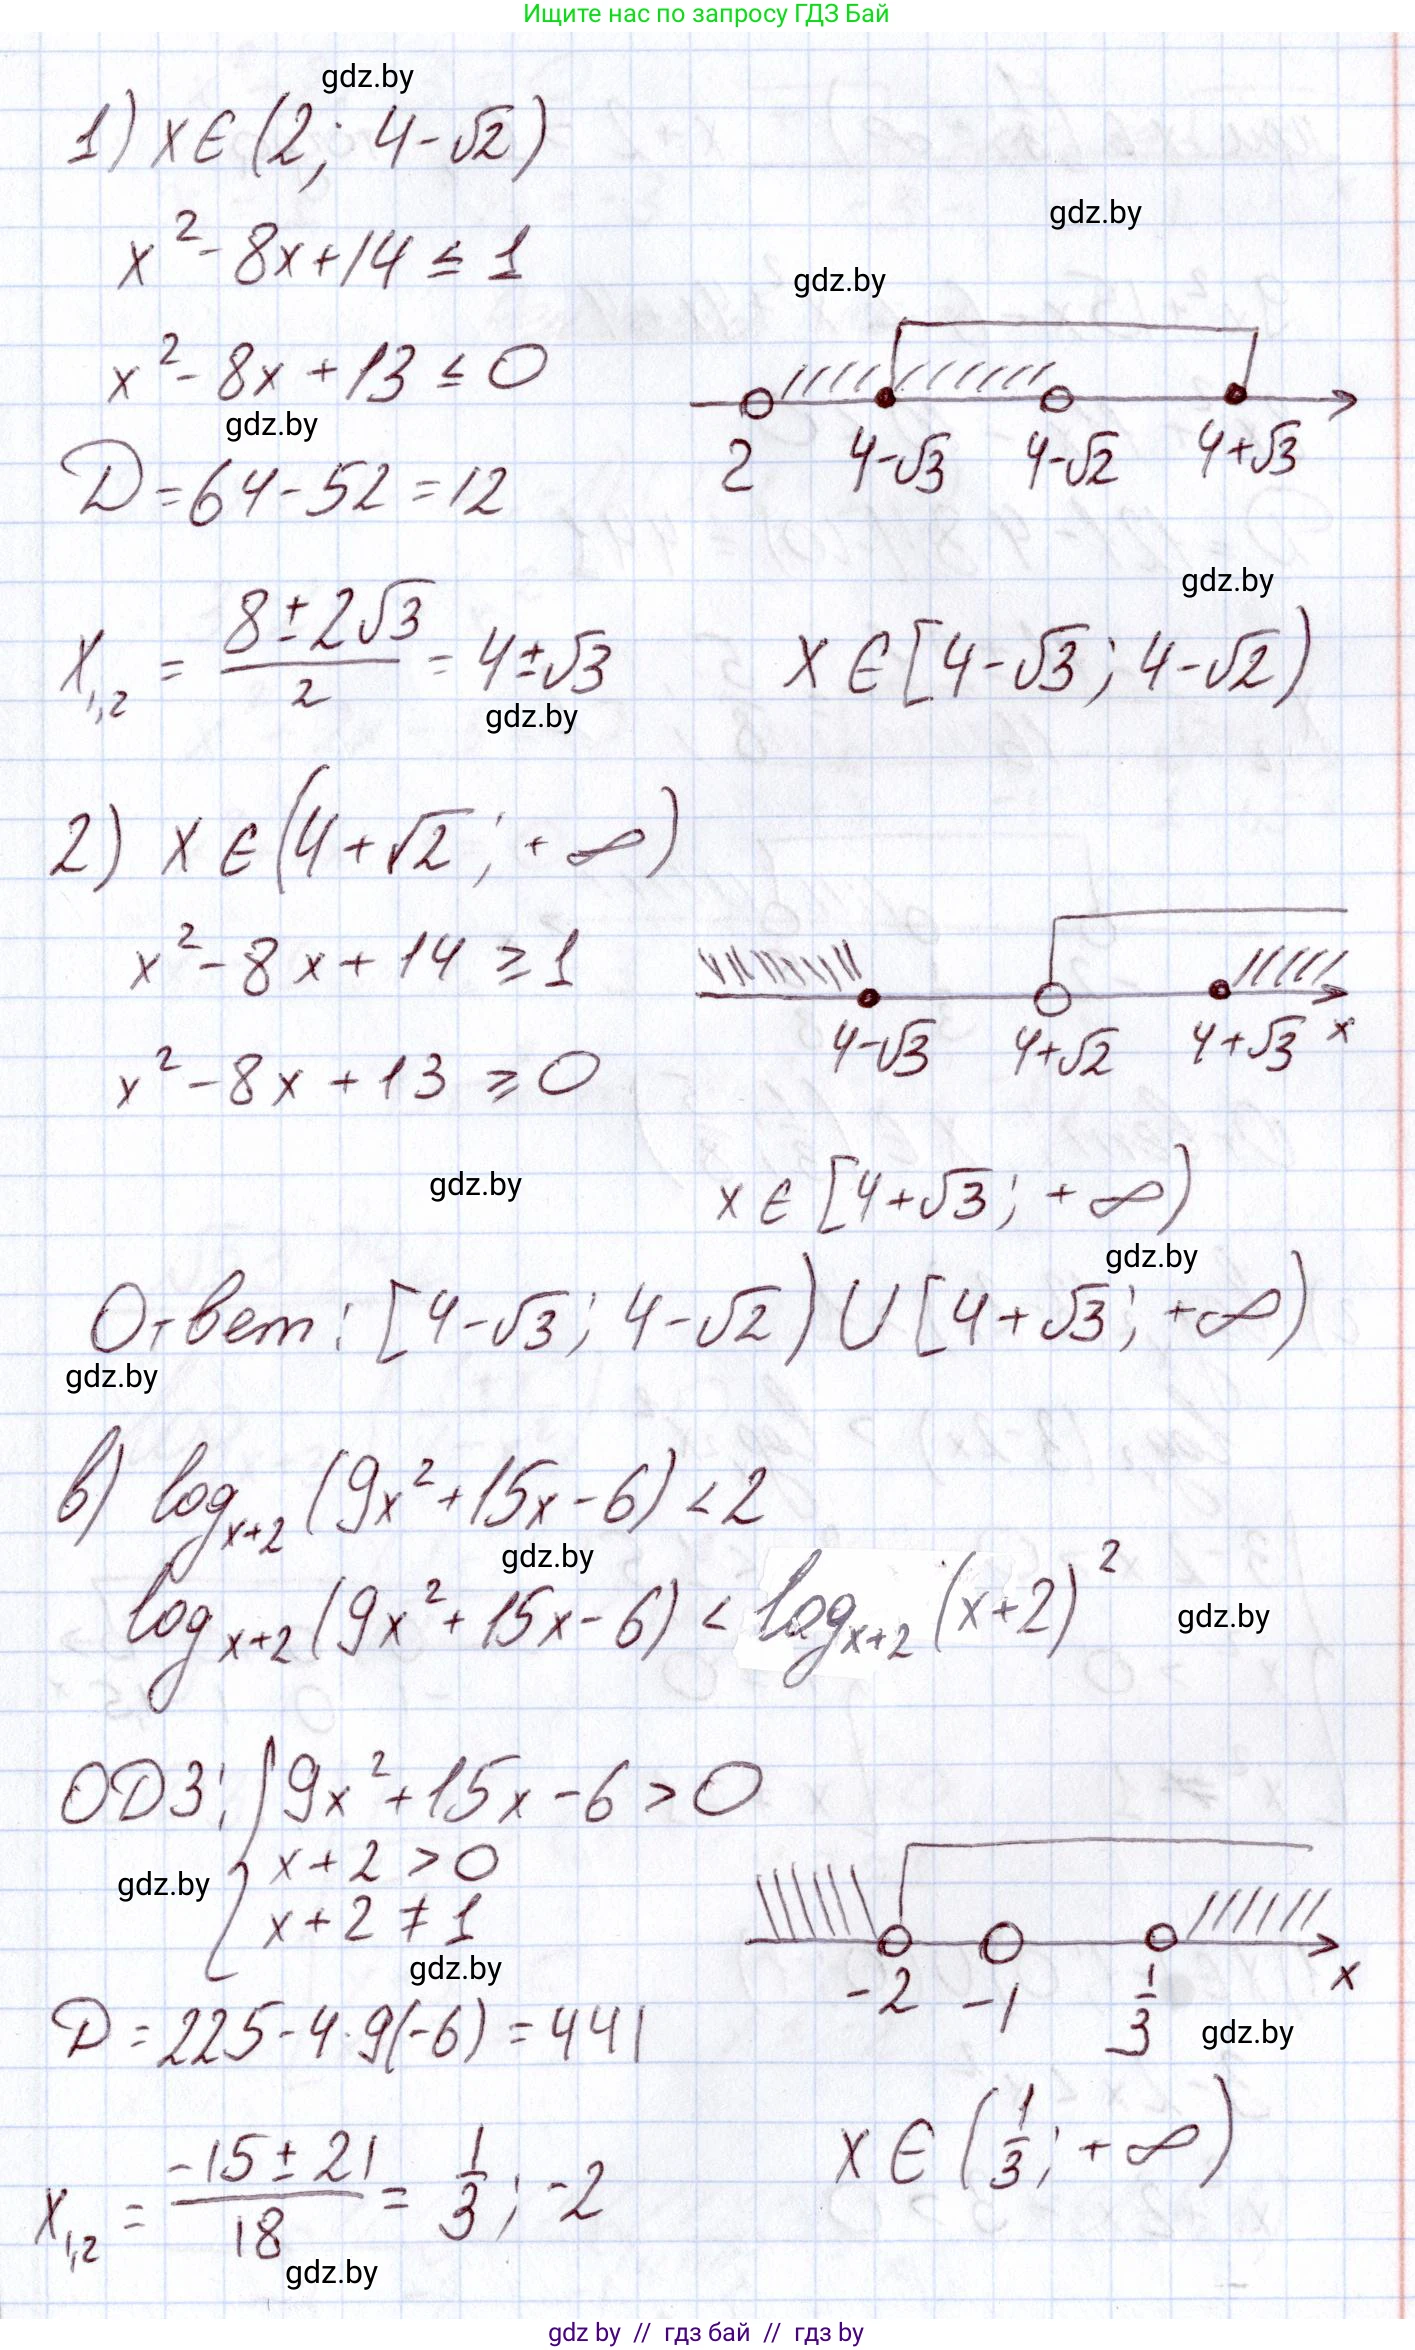 Ищите нас по запросу ГДЗ Бай
gdz.by
1) x ∈ (2; 4-√2)
gdz.by
x² - 8x + 14 ≤ 1
gdz.by
x² - 8x + 13 ≤ 0
gdz.by
2 4-√3 4-√2 4+√3
D = 64 - 52 = 12
gdz.by
x₁,₂ = (8 ± 2√3)/2 = 4 ± √3
x ∈ [4-√3; 4-√2)
gdz.by
2) x ∈ (4+√2; +∞)
x² - 8x + 14 ≥ 1
4-√3 4+√2 4+√3 x
x² - 8x + 13 ≥ 0
gdz.by
x ∈ [4+√3; +∞)
gdz.by
Ответ: [4-√3; 4-√2) ∪ [4+√3; +∞)
gdz.by
в) log_{x+2} (9x² + 15x - 6) < 2
gdz.by
log_{x+2} (9x² + 15x - 6) < log_{x+2} (x+2)²
gdz.by
ОДЗ: { 9x² + 15x - 6 > 0
x + 2 > 0
gdz.by
x + 2 ≠ 1
gdz.by
-2 -1 1/3 x
D = 225 - 4·9(-6) = 441
gdz.by
x₁,₂ = (-15 ± 21)/18 = 1/3; -2
x ∈ (1/3; +∞)
gdz.by
gdz by // гдз бай // гдз by